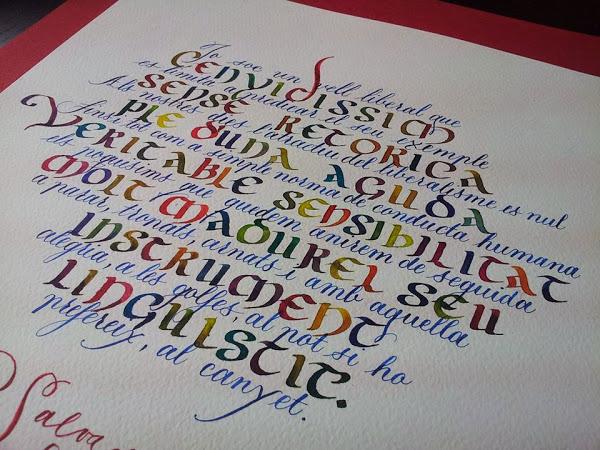 Jo soc un vell liberal que
CENYIDISSIM
es limita a predicar el seu exemple
SENSE RETORICA
Als nostres dies l'atractiu del liberalisme es nul
PLE DUNA AGUDA
Ainsi tot com a simple norma de conducta humana
VERITABLE SENSIBILITAT
els poquissims que quedem anirem de seguida
MOLT MADUR EL SEU
a parar, tronats arnats i amb aquella
INSTRUMENT
alegria a les golfes, al pot si ho
LINGUISTIC.
prefereix, al canyet.
Salva